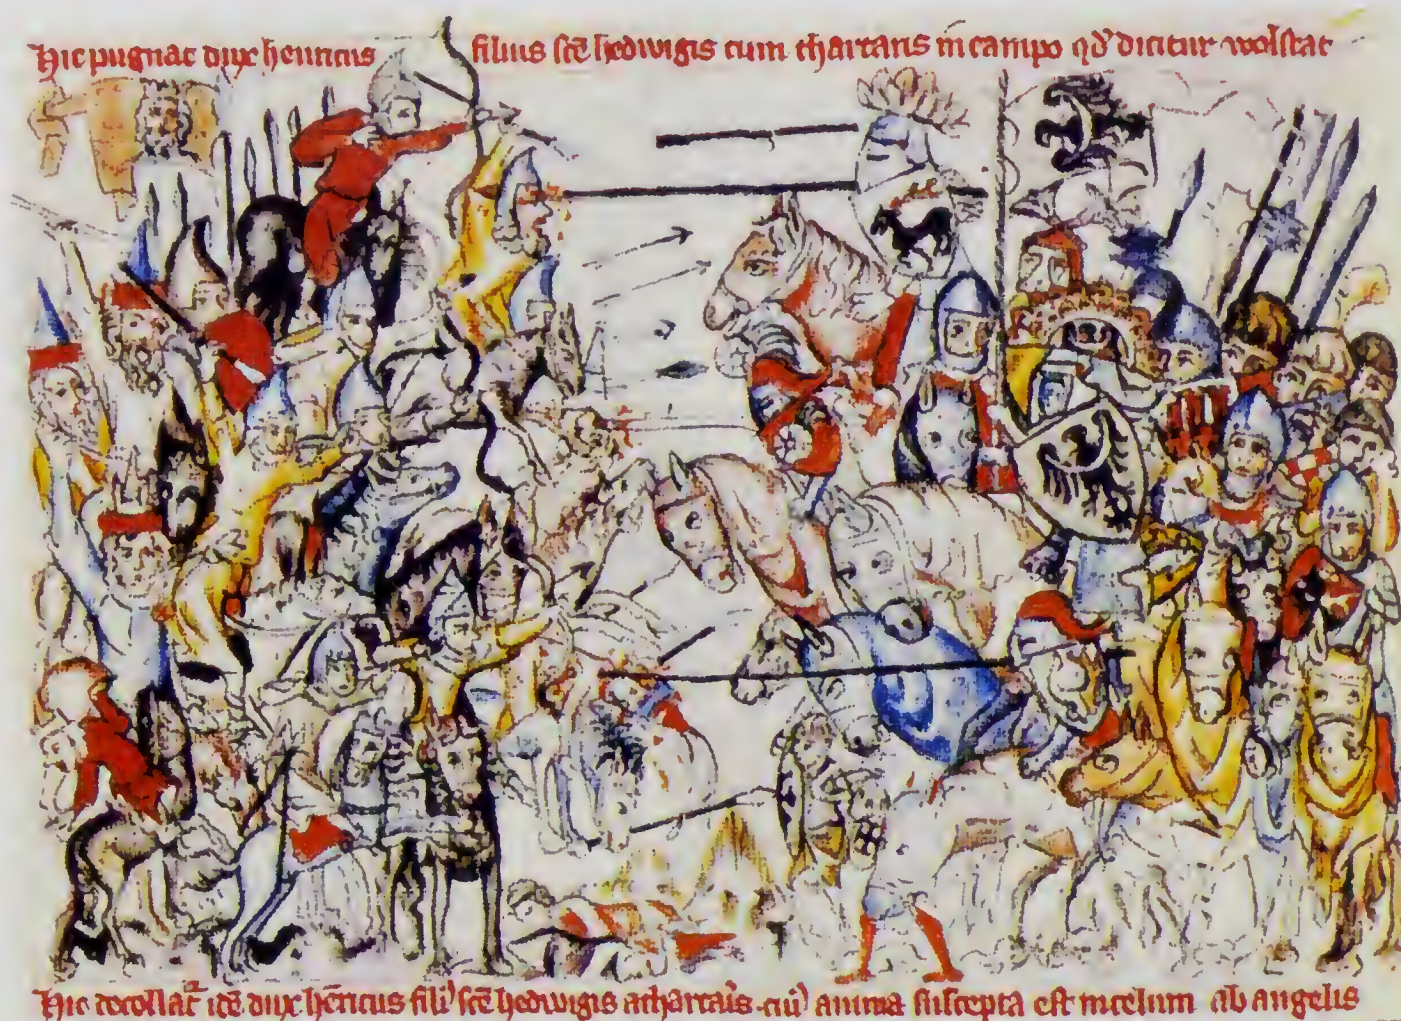 Hic pugnat dux henricus filius scē hedwigis cum thartaris in campo qd' dicitur wolstat
Hic decollat² idē dux hēricus fili' scē hedwigis athartaris cui' anima suscepta est in celum ab angelis